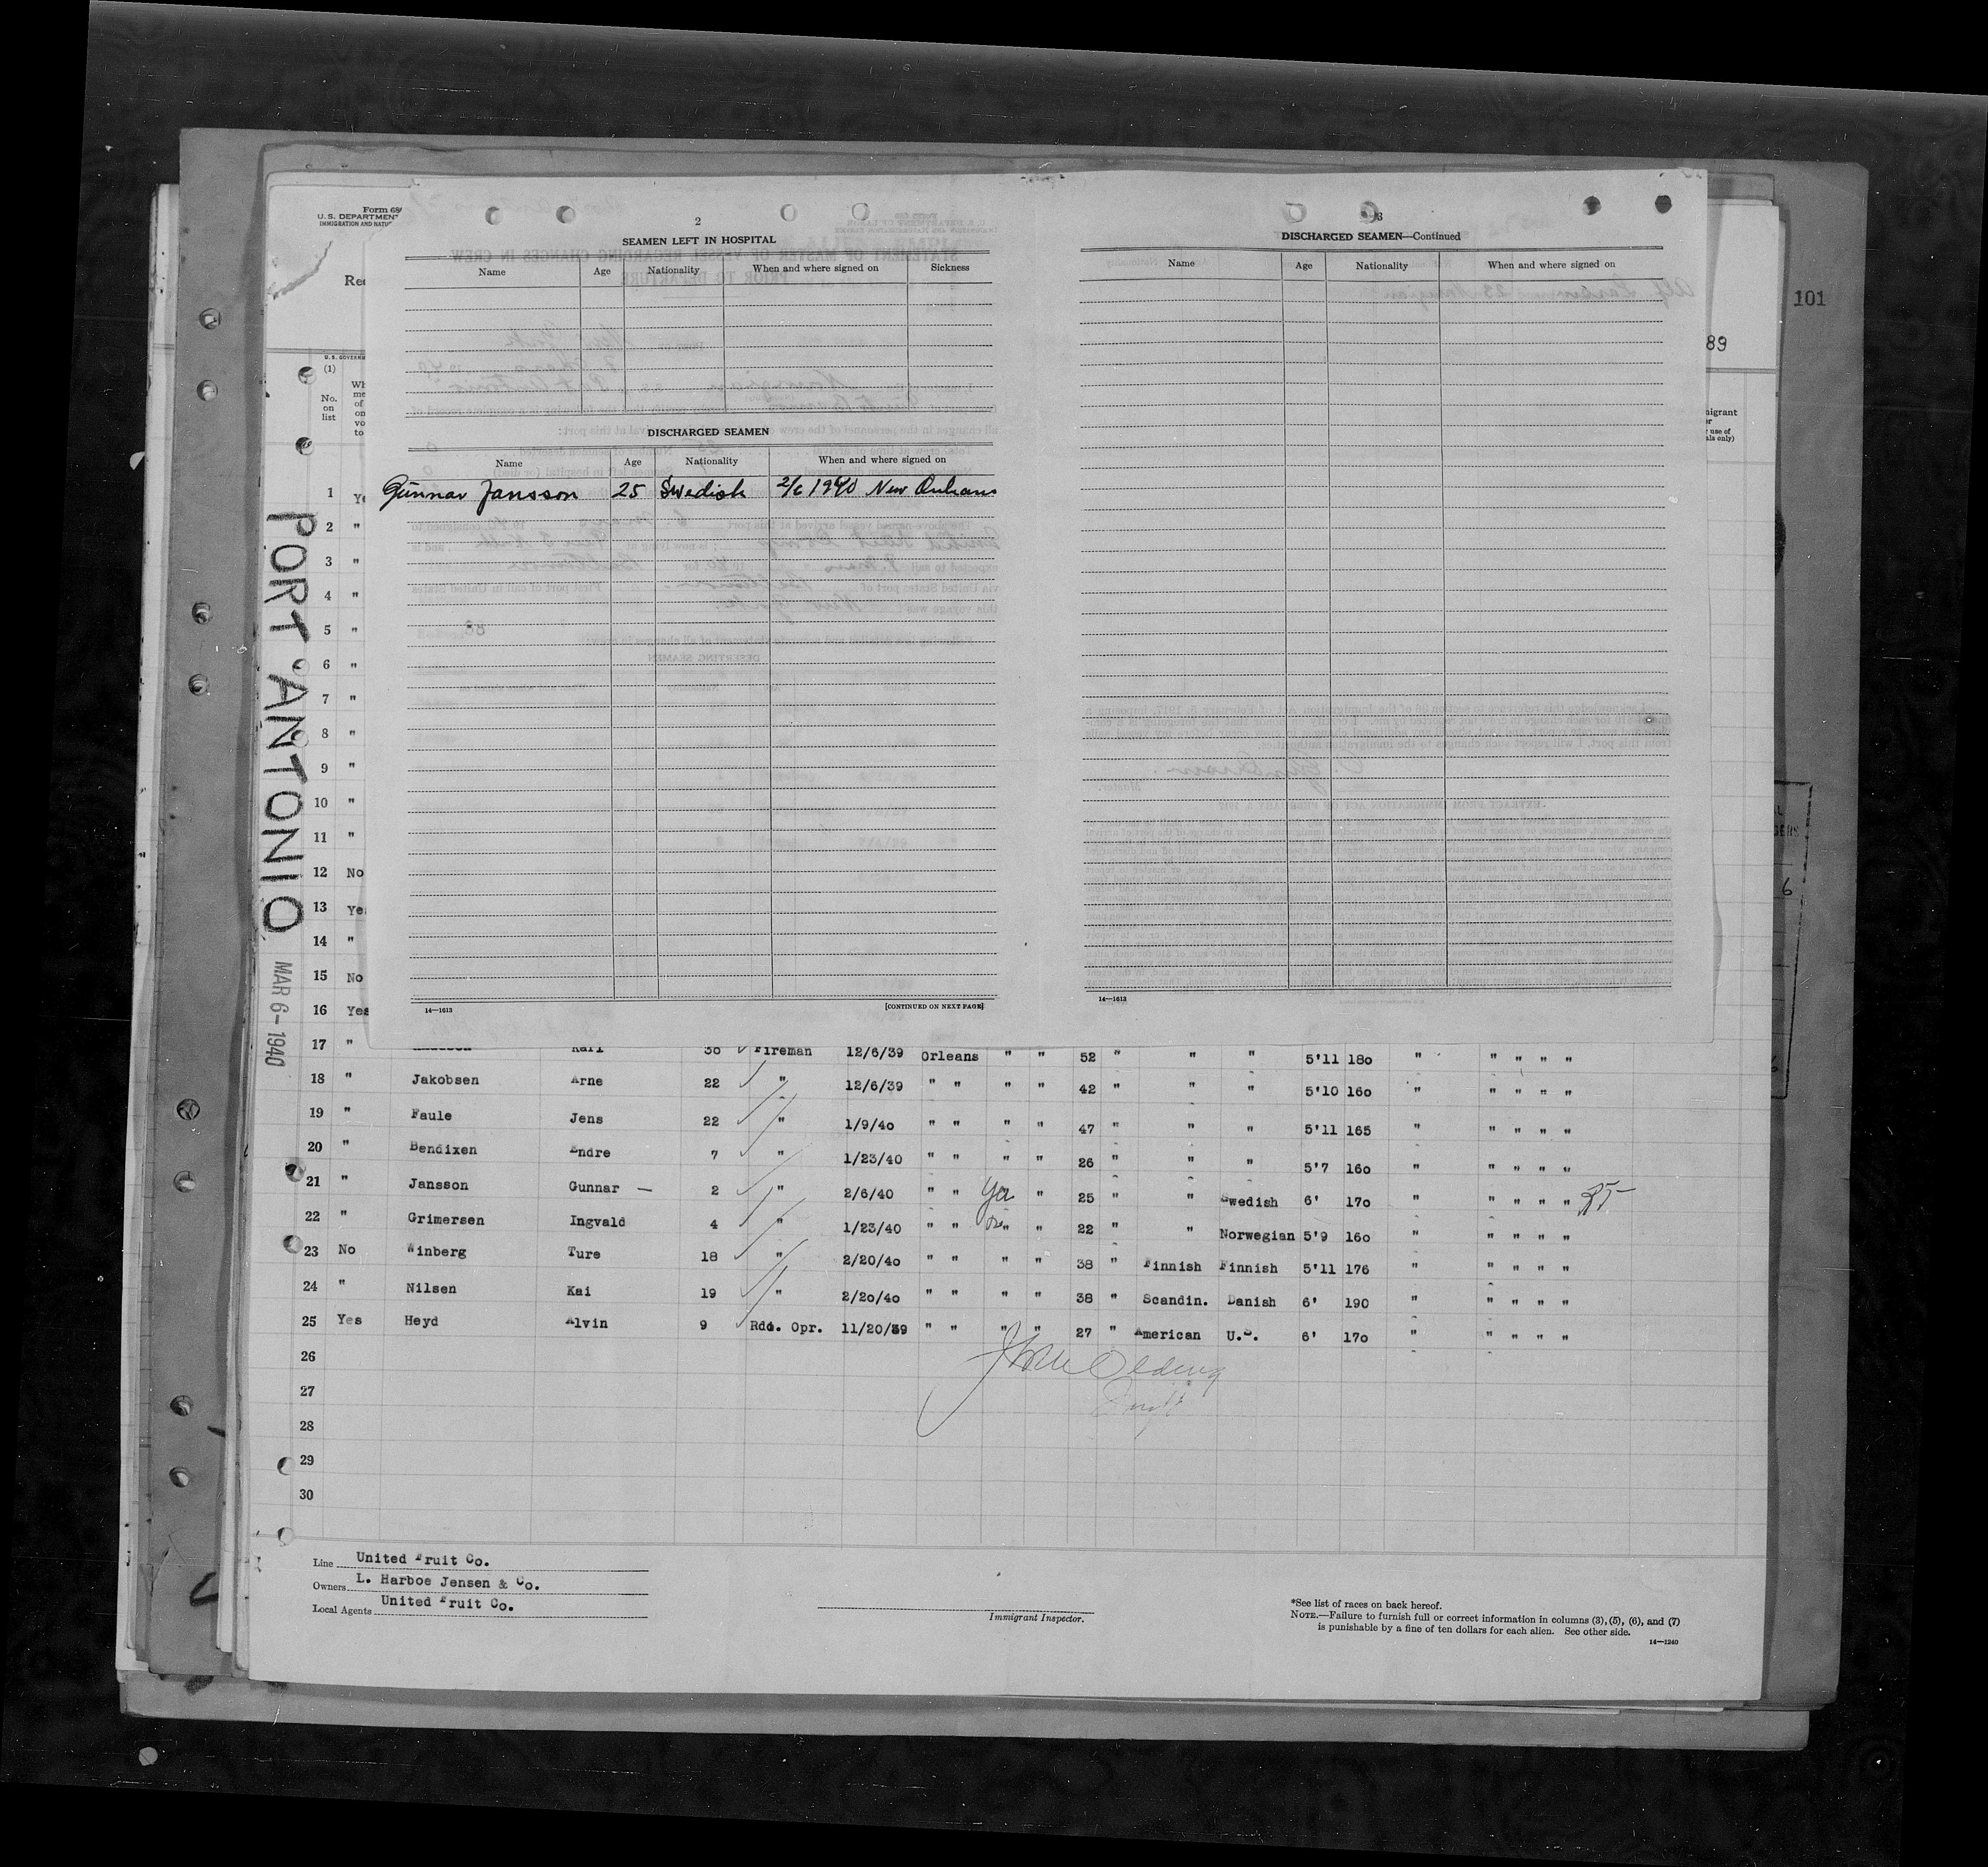 Form 68
U.S. DEPARTMENT
IMMIGRATION AND NATU
Rec
101
89
U.S. GOVERNM
(1)
No. on list
2
SEAMEN LEFT IN HOSPITAL
Name Age Nationality When and where signed on Sickness
DISCHARGED SEAMEN
Name Age Nationality When and where signed on
Gunnar Jansson 25 Swedish 2/6 1940 New Orleans
14—1613 [CONTINUED ON NEXT PAGE]
3
DISCHARGED SEAMEN—Continued
Name Age Nationality When and where signed on
14—1613
PORT ANTONIO
MAR 6- 1940
1 Ye
2 "
3 "
4 "
5 "
6 "
7 "
8 "
9 "
10 "
11 "
12 No
13 Yes
14 "
15 No
16 Yes
17 " Karl Fireman 12/6/39 Orleans " " 52 " " " 5'11 180 " " " " "
18 " Jakobsen Arne 22 " 12/6/39 " " " " 42 " " " 5'10 160 " " " " "
19 " Faule Jens 22 " 1/9/40 " " " " 47 " " " 5'11 165 " " " " "
20 " Bendixen Andre 7 " 1/23/40 " " " " 26 " " " 5'7 160 " " " " "
21 " Jansson Gunnar — 2 " 2/6/40 " " Yes " 25 " " Swedish 6' 170 " " " " "
22 " Grimersen Ingvald 4 " 1/23/40 " " " " 22 " " Norwegian 5'9 160 " " " " "
23 No Winberg Ture 18 " 2/20/40 " " " " 38 " Finnish Finnish 5'11 176 " " " " "
24 " Nilsen Kai 19 " 2/20/40 " " " " 38 " Scandin. Danish 6' 190 " " " " "
25 Yes Heyd Alvin 9 Rdo. Opr. 11/20/39 " " " " 27 " American U.S. 6' 170 " " " " "
26
27
28
29
30
Line United Fruit Co.
Owners L. Harboe Jensen & Co.
Local Agents United Fruit Co.
Immigrant Inspector.
*See list of races on back hereof.
NOTE.—Failure to furnish full or correct information in columns (3), (5), (6), and (7)
is punishable by a fine of ten dollars for each alien. See other side.
14—1240